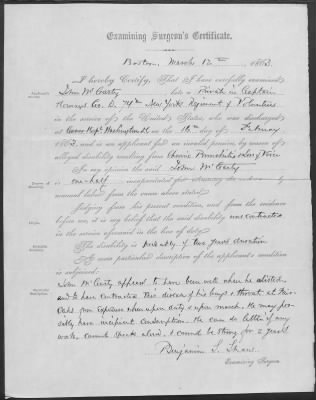 Examining Surgeon's Certificate.
Boston, March 12th, 1863.
I hereby Certify, That I have carefully examined
John McCarty late a Private in Captain
Co. D. 74th New York Regiment of Volunteers
in the service of the United States, who was discharged
at Washington on the 16th day of February
1863, and is an applicant for an invalid pension, by reason of
alleged disability resulting from Chronic Bronchitis & Loss of Voice
In my opinion the said John McCarty
is one-half incapacitated for obtaining his subsistence by
manual labor from the cause above stated.
Judging from his present condition, and from the evidence
before me, it is my belief that the said disability was contracted
in the service aforesaid in the line of duty.
The disability is probably of two years duration
A more particular description of the applicant's condition
is subjoined:
John McCarty appeared to have been well when he enlisted
and to have contracted this disease of his lungs & throat at Fair
Oaks from exposure when upon duty & upon march. He may pos-
sibly have incipient consumption. He can do little of any
work, cannot speak aloud, & cannot be strong for 2 years
Benjamin S. Shaw
Examining Surgeon.